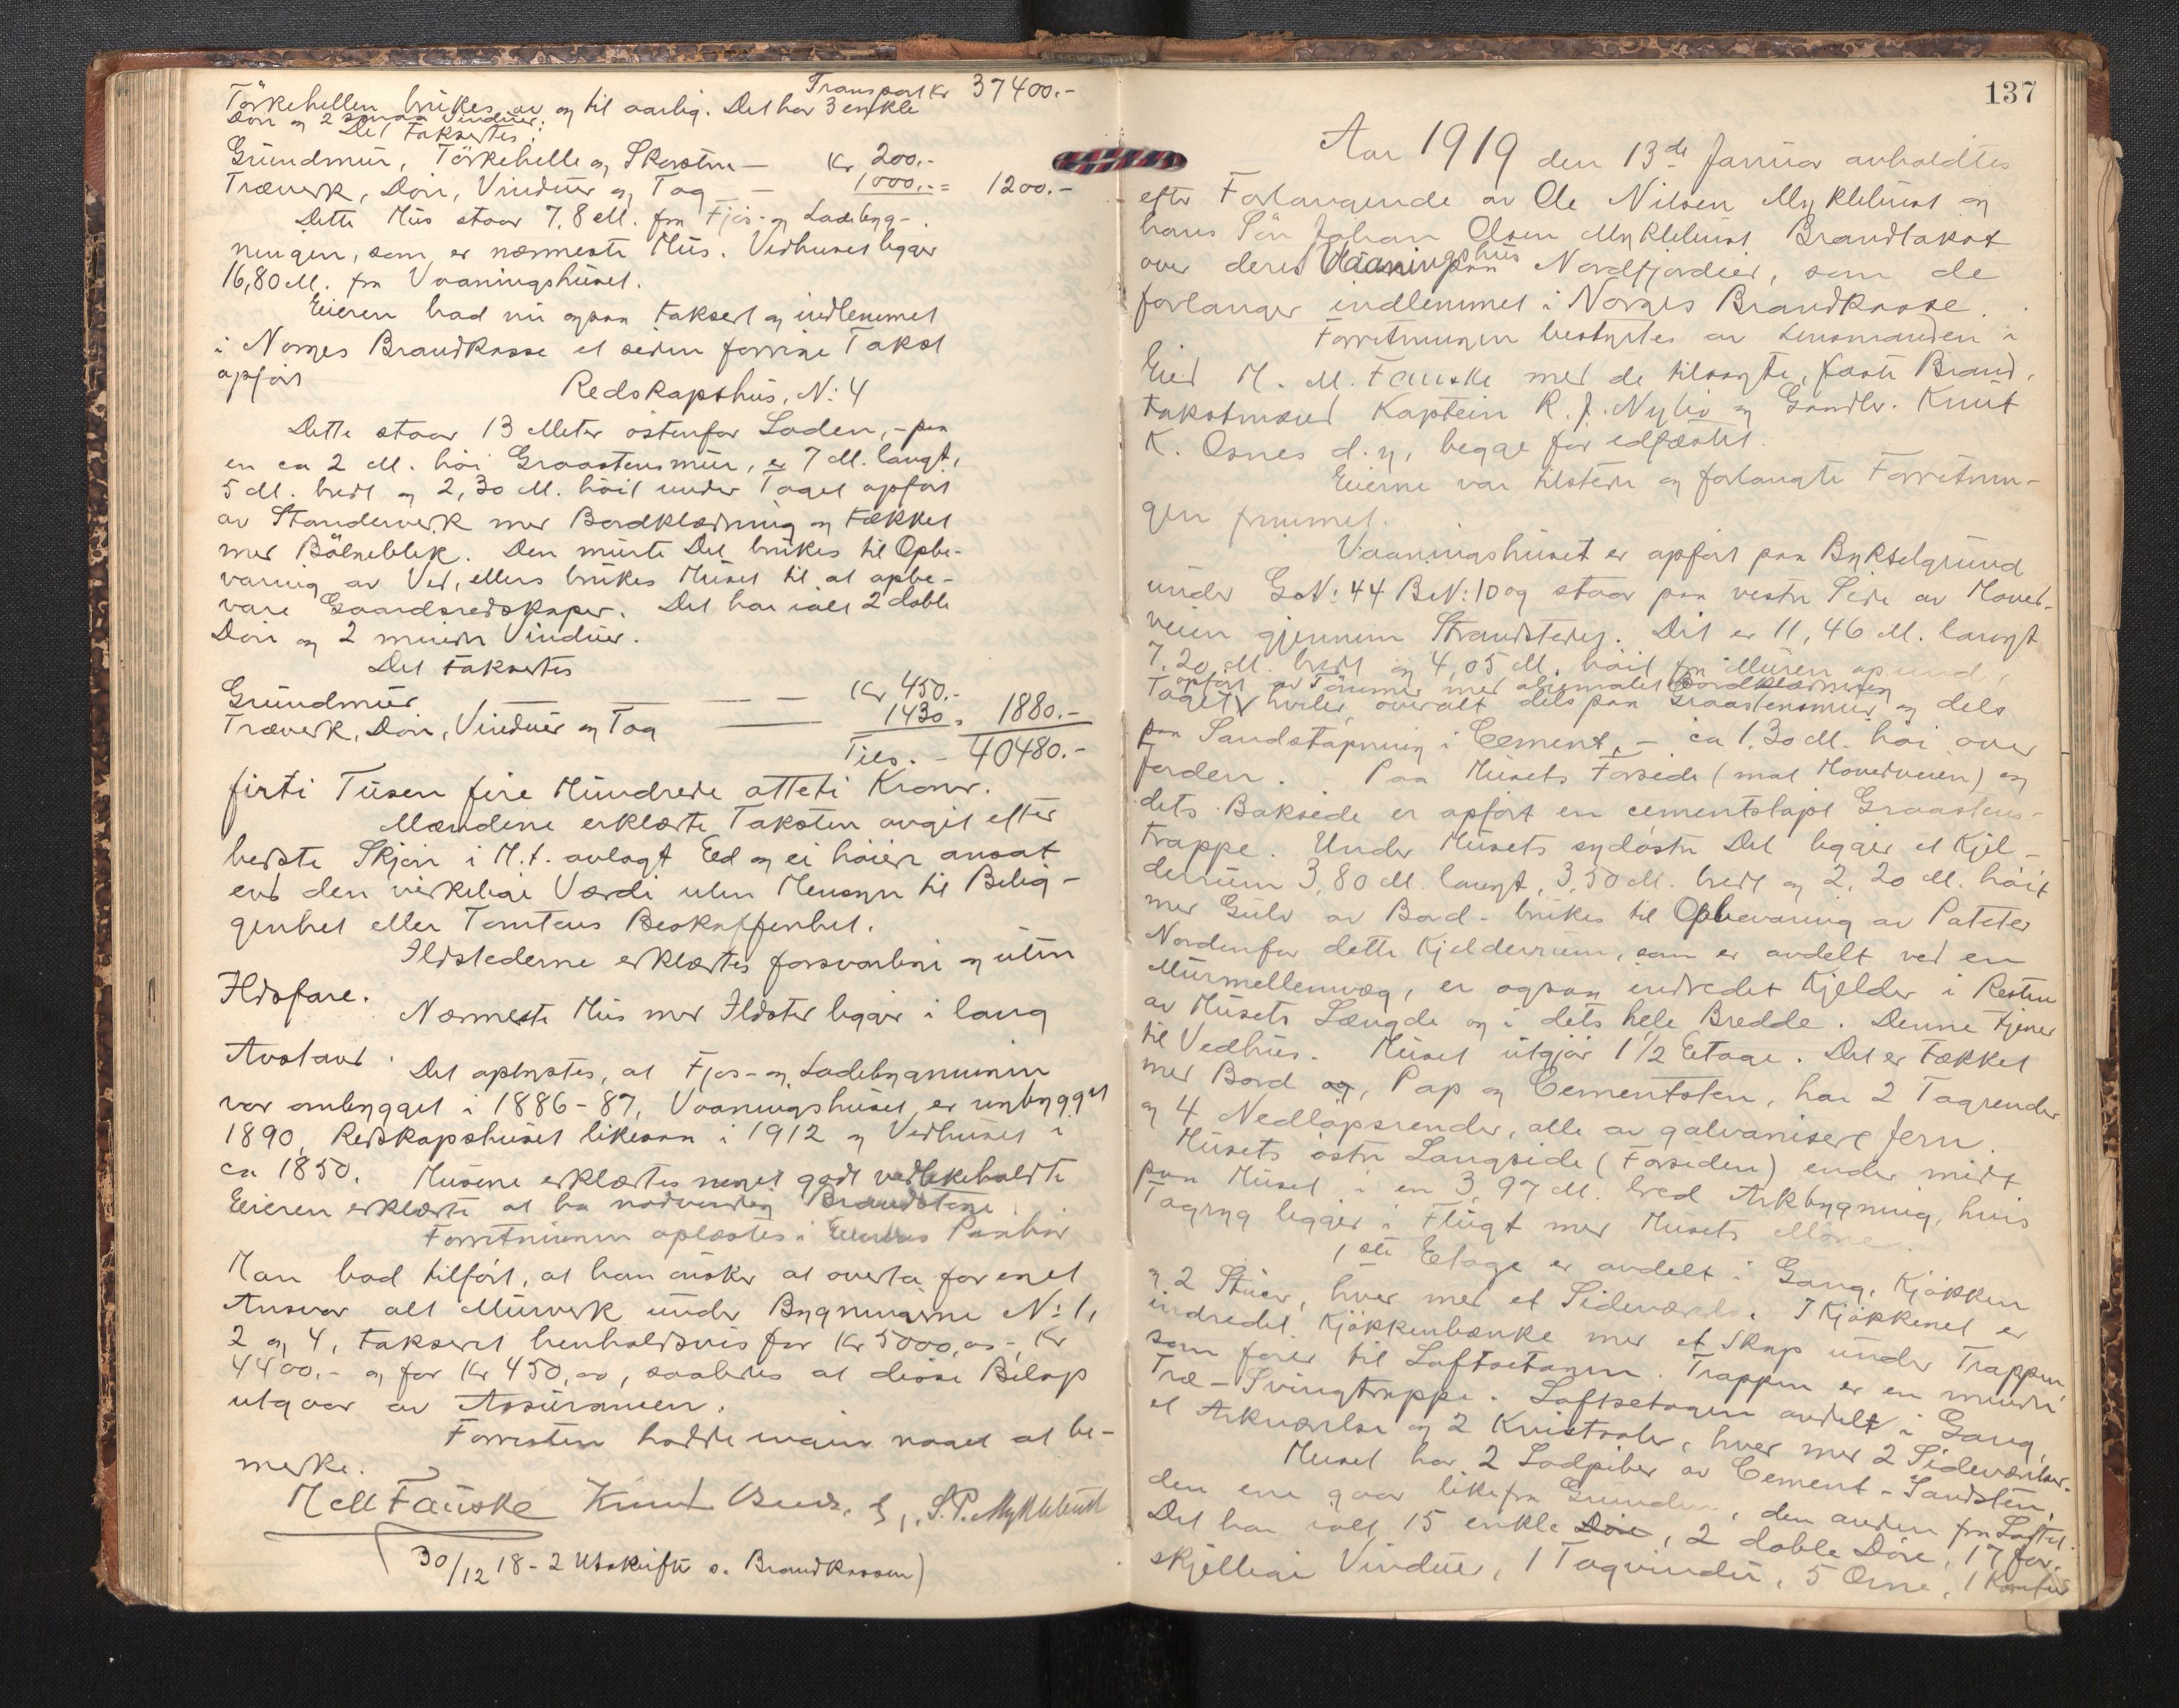 Transport Kr 37400.-
Törkehellen brukes av og til aarlig. Det har 3 enkle
Döre og 2 smaa Vinduer.
Det taksertes:
Grundmur, Törkehelle og Skorsten — Kr 200.-
Træverk, Döre, Vinduer og Tag — 1000.- = 1200.-
Dette Hus staar 7,8 M. fra Fjös- og Ladebyg-
ningen, som er nærmeste Hus. Vedhuset ligger
16,80 M. fra Vaaningshuset.
Eieren bad nu ogsaa taksert og indlemmet
i Norges Brandkasse et siden forrige Takst
opfört
Redskapshus, N: 4
Dette staar 13 Meter östenfor Laden, - paa
en ca 2 M. höi Graastensmur, er 7 M. langt,
5 M. bredt og 2,30 M. höit under Taget opfört
av Standerverk med Bordklædning og tækket
med Bölgeblik. Den murte Del brukes til Opbe-
varing av Ved, ellers brukes Huset til at opbe-
vare Gaardsredskaper. Det har ialt 2 doble
Döre og 2 mindre Vinduer.
Det taksertes
Grundmur — — Kr 450.-
Træverk, Döre, Vinduer og Tag — 1430 = 1880.-
Tils. - 40480.-
firti Tusen fire Hundrede otteti Kroner.
Mændene erklærte Taksten avgit efter
bedste Skjön i H.t. avlagt Ed og ei höiere ansat
end den virkelige Værdi uten Hensyn til Belig-
genhet eller Tomtens Beskaffenhet.
Ildstederne erklærtes forsvarlige og uten
Ildsfare.
Nærmeste Hus med Ildsted ligger i lang
Avstand.
Det oplystes, at Fjös- og Ladebygningen
var ombygget i 1886-87, Vaaningshuset er nybygget
1890, Redskapshuset likesaa i 1912 og Vedhuset i
ca 1850. Husene erklærtes meget godt vedlikeholdte
Eieren erklærte at ha nødvendig Brandstige
Forretningen oplæstes i Eierens Paahör
Han bad tilfört, at han önsker at overta for eget
Ansvar alt Murverk under Bygningerne N: 1,
2 og 4, taksert henholdsvis for Kr 5000,oo -, Kr
4400.- og for Kr 450,oo, saaledes at disse Belöp
utgaar av Assurancen.
Forresten hadde ingen noget at be-
merke.
M M Fauske Knut Osnes d. y. S. P. Myklebust
30/12 18 - 2 Utskrifter s. Brandkassen)
137
Aar 1919 den 13de Januar avholdtes
efter Forlangende av Ole Nilsen Myklebust og
hans Sön Johan Olsen Myklebust Brandtakst
over deres Vaaningshus paa Nordfjordeid, som de
forlanger indlemmet i Norges Brandkasse.
Forretningen bestyrtes av Lensmanden i
Eid M. M. Fauske med de tilsagte, faste Brand-
takstmænd Kaptein R. J. Nybö og Gaardbr. Knut
K. Osnes d. y, begge för edfæstet.
Eierne var tilstede og forlangte Forretnin-
gen fremmet.
Vaaningshuset er opfört paa Bykselgrund
under G.N: 44 B.N: 10 og staar paa vestre Side av Hoved-
veien gjennem Strandstedet. Det er 11,46 M. langt
7,20 M. bredt og 4,05 M. höit fra Muren op under
opfört av Tömmer med oljemalet Bordklædning
Taget, hviler overalt dels paa Graastensmur og dels
paa Sandstöpning i Cement, - ca 1.30 M. höi over
Jorden. Paa Husets Forside (mot Hovedveien) og
dets Bakside er opfört en cementstöpt Graastens-
trappe. Under Husets sydöstre Del ligger et Kjel-
derrum 3,80 M. langt, 3,50 M. bredt og 2,20 M. höit
med Gulv av Bord - brukes til Opbevaring av Poteter
Nordenfor dette Kjelderrum, som er avdelt ved en
Murmellemvæg, er ogsaa indredet Kjelder i Resten
av Husets Længde og i dets hele Bredde. Denne tjener
til Vedhus. Huset utgjör 1 1/2 Etage. Det er tækket
med Bord og, Pap og Cementsten, har 2 Tagrender
og 4 Nedlöpsrender, alle av galvanisert Jern.
Husets östre Langside (Forsiden) ender midt
paa Huset i en 3,97 M. bred Arkbygning, hvis
Tagryg ligger i Flugt med Husets Möne.
1ste Etage er avdelt i Gang, Kjökken
og 2 Stuer, hver med et Sideværelse. I Kjökkenet er
indredet Kjökkenbænke med et Skap under Trappen,
som förer til Loftsetagen. Trappen er en mindre
Træ-Svingtrappe. Loftsetagen avdelt i Gang,
et Arkværelse og 2 Kvistsaler, hver med 2 Sideværelser.
Huset har 2 Lodpiber av Cement-Sandsten,
den ene gaar like fra Grunden, den anden fra Loftet.
Det har ialt 15 enkle Döre, 2 doble Döre, 17 for-
skjellige Vinduer, 1 Tagvindu, 5 Ovne, 1 Komfur